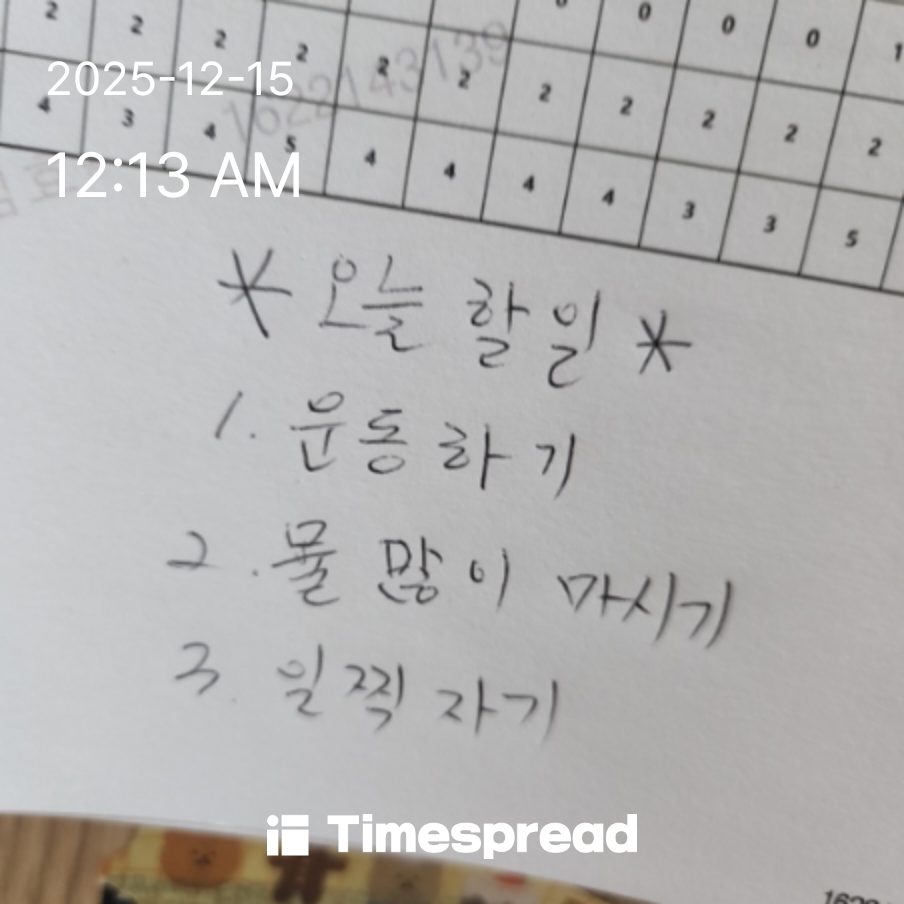 2 2 2 2 2 2 2 2 2 2 2
4 3 4 5 4 4 4 4 3 3 5
0 0 0 1
1622143139
2025-12-15
12:13 AM
* 오늘 할일 *
1. 운동하기
2. 물 많이 마시기
3. 일찍 자기
Timespread